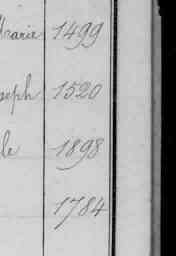 Marie 1499
seph 1520
le 1898
1784